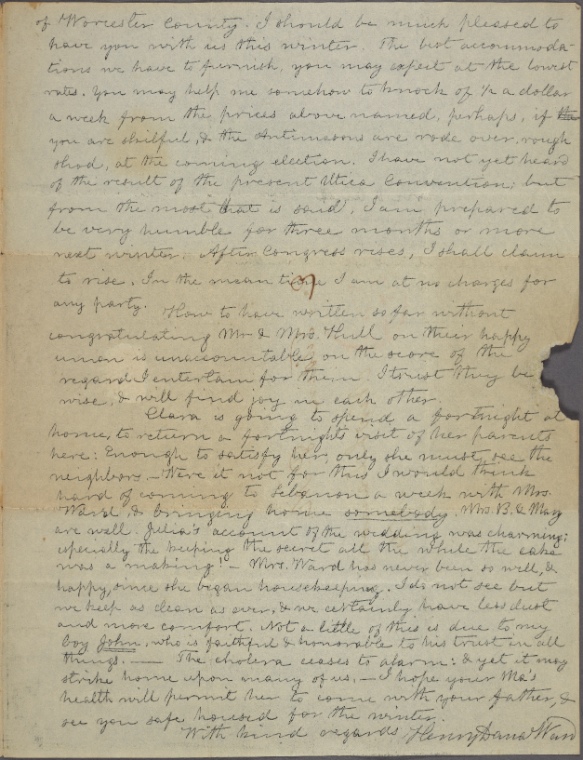 of Worcester County. I should be much pleased to
have you with us this winter. The best accommoda-
tions we have to furnish, you may expect at the lowest
rates. You may help me somehow to knock of ½ a dollar
a week from the prices above named, perhaps, if the
you are skilful, & the Antimasons are rode over, rough
shod, at the coming election. I have not yet heard
of the result of the present Utica Convention; but
from the most that is said, I am prepared to
be very humble for three months or more
next winter. After Congress rises, I shall claim
to rise. In the mean time I am at no charges for
any party.
How to have written so far without
congratulating Mr & Mrs. Hull on their happy
union is unaccountable, on the score of the
regard I entertain for them. I trust they be
wise, & will find joy in each other.
Clara is going to spend a fortnight at
home, to return a fortnight's visit of her parents
here: Enough to satisfy her, only she must see the
neighbors. — Were it not for this I would think
hard of coming to Lebanon a week with Mrs.
Ward, & bringing home somebody. Mrs. B. & May
are well. Julia's account of the wedding was charming;
especially the keeping the secret all the while the cake
was a making! — Mrs. Ward has never been so well, &
happy, since she began housekeeping. I do not see but
we keep as clean as ever, & we certainly have less dust
and more comfort. Not a little of this is due to my
boy John, who is faithful & honorable to his trust in all
things. — The cholera ceases to alarm: & yet it may
strike home upon many of us. — I hope your Ma's
health will permit her to come with your father, &
see you safe housed for the winter.
With kind regards Henry Dana Ward